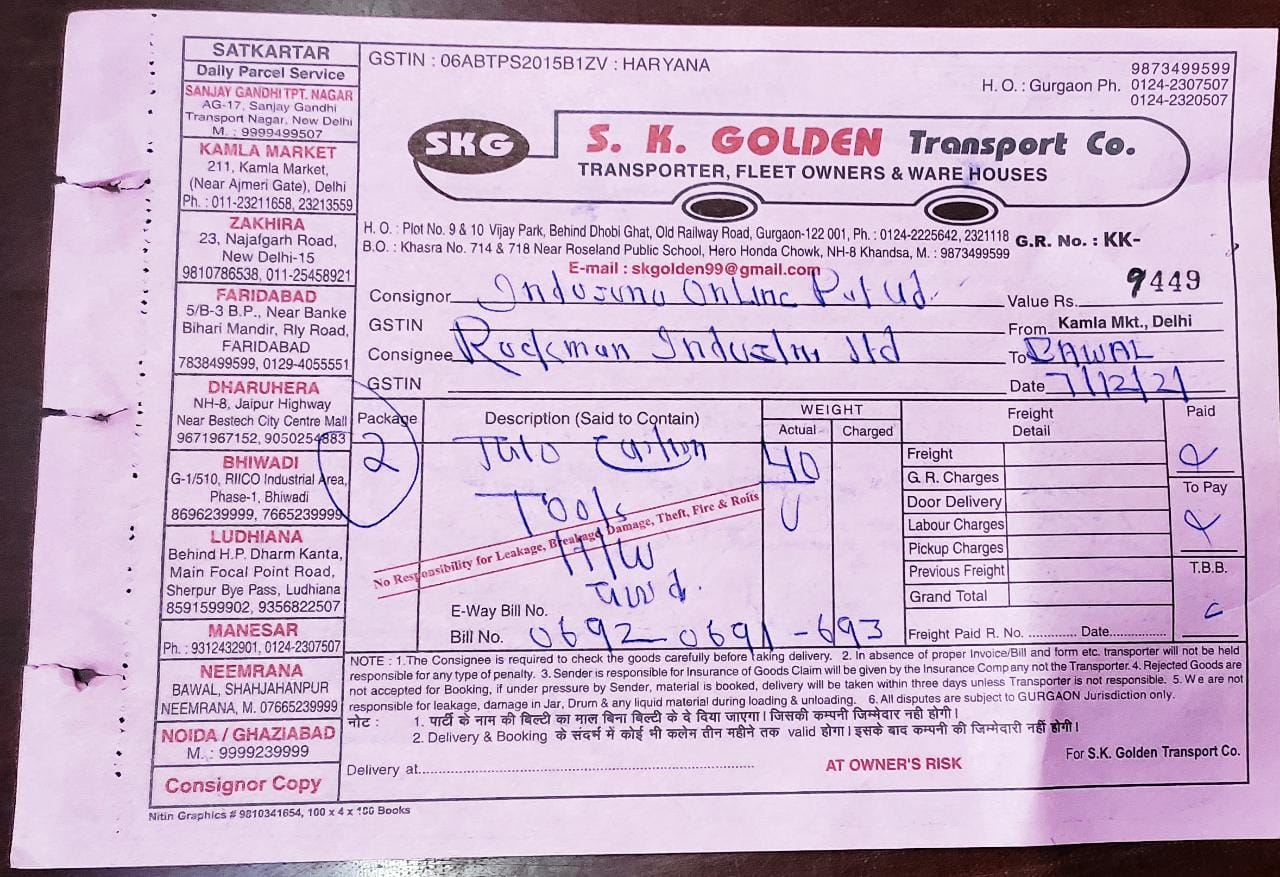 SATKARTAR
Daily Parcel Service
SANJAY GANDHI TPT. NAGAR
AG-17, Sanjay Gandhi
Transport Nagar, New Delhi
M. : 9999499507
KAMLA MARKET
211, Kamla Market,
(Near Ajmeri Gate), Delhi
Ph. : 011-23211658, 23213559
ZAKHIRA
23, Najafgarh Road,
New Delhi-15
9810786538, 011-25458921
FARIDABAD
5/B-3 B.P., Near Banke
Bihari Mandir, Rly Road,
FARIDABAD
7838499599, 0129-4055551
DHARUHERA
NH-8, Jaipur Highway
Near Bestech City Centre Mall
9671967152, 9050254883
BHIWADI
G-1/510, RIICO Industrial Area,
Phase-1, Bhiwadi
8696239999, 7665239999
LUDHIANA
Behind H.P. Dharm Kanta,
Main Focal Point Road,
Sherpur Bye Pass, Ludhiana
8591599902, 9356822507
MANESAR
Ph. : 9312432901, 0124-2307507
NEEMRANA
BAWAL, SHAHJAHANPUR
NEEMRANA, M. 07665239999
NOIDA / GHAZIABAD
M. : 9999239999
Consignor Copy
GSTIN : 06ABTPS2015B1ZV : HARYANA
9873499599
H. O. : Gurgaon Ph. 0124-2307507
0124-2320507
SKG
S. K. GOLDEN Transport Co.
TRANSPORTER, FLEET OWNERS & WARE HOUSES
H. O. : Plot No. 9 & 10 Vijay Park, Behind Dhobi Ghat, Old Railway Road, Gurgaon-122 001, Ph. : 0124-2225642, 2321118
B.O. : Khasra No. 714 & 718 Near Roseland Public School, Hero Honda Chowk, NH-8 Khandsa, M. : 9873499599
G.R. No. : KK-
E-mail : skgolden99@gmail.com
9449
Consignor Online
Value Rs.
GSTIN
From Kamla Mkt., Delhi
Consignee Rockman ltd
To BAWAL
GSTIN
Date 7/12/21
Package Description (Said to Contain) WEIGHT Freight Detail Paid
Actual Charged
2
40
Tools
No Responsibility for Leakage, Breakage, Damage, Theft, Fire & Roits
H/W
Freight
G. R. Charges
Door Delivery
Labour Charges
Pickup Charges
Previous Freight
Grand Total
Freight Paid R. No. ............. Date...............
To Pay
T.B.B.
E-Way Bill No.
Bill No. 0692-0691-693
NOTE : 1.The Consignee is required to check the goods carefully before taking delivery. 2. In absence of proper Invoice/Bill and form etc. transporter will not be held
responsible for any type of penalty. 3. Sender is responsible for Insurance of Goods Claim will be given by the Insurance Company not the Transporter. 4. Rejected Goods are
not accepted for Booking, if under pressure by Sender, material is booked, delivery will be taken within three days unless Transporter is not responsible. 5. We are not
responsible for leakage, damage in Jar, Drum & any liquid material during loading & unloading. 6. All disputes are subject to GURGAON Jurisdiction only.
नोट : 1. पार्टी के नाम की बिल्टी का माल बिना बिल्टी के दे दिया जाएगा। जिसकी कम्पनी जिम्मेदार नही होगी।
2. Delivery & Booking के संदर्भ में कोई भी कलेम तीन महीने तक valid होगा। इसके बाद कम्पनी की जिम्मेदारी नहीं होगी।
Delivery at
AT OWNER'S RISK
For S.K. Golden Transport Co.
Nitin Graphics # 9810341654, 100 x 4 x 100 Books